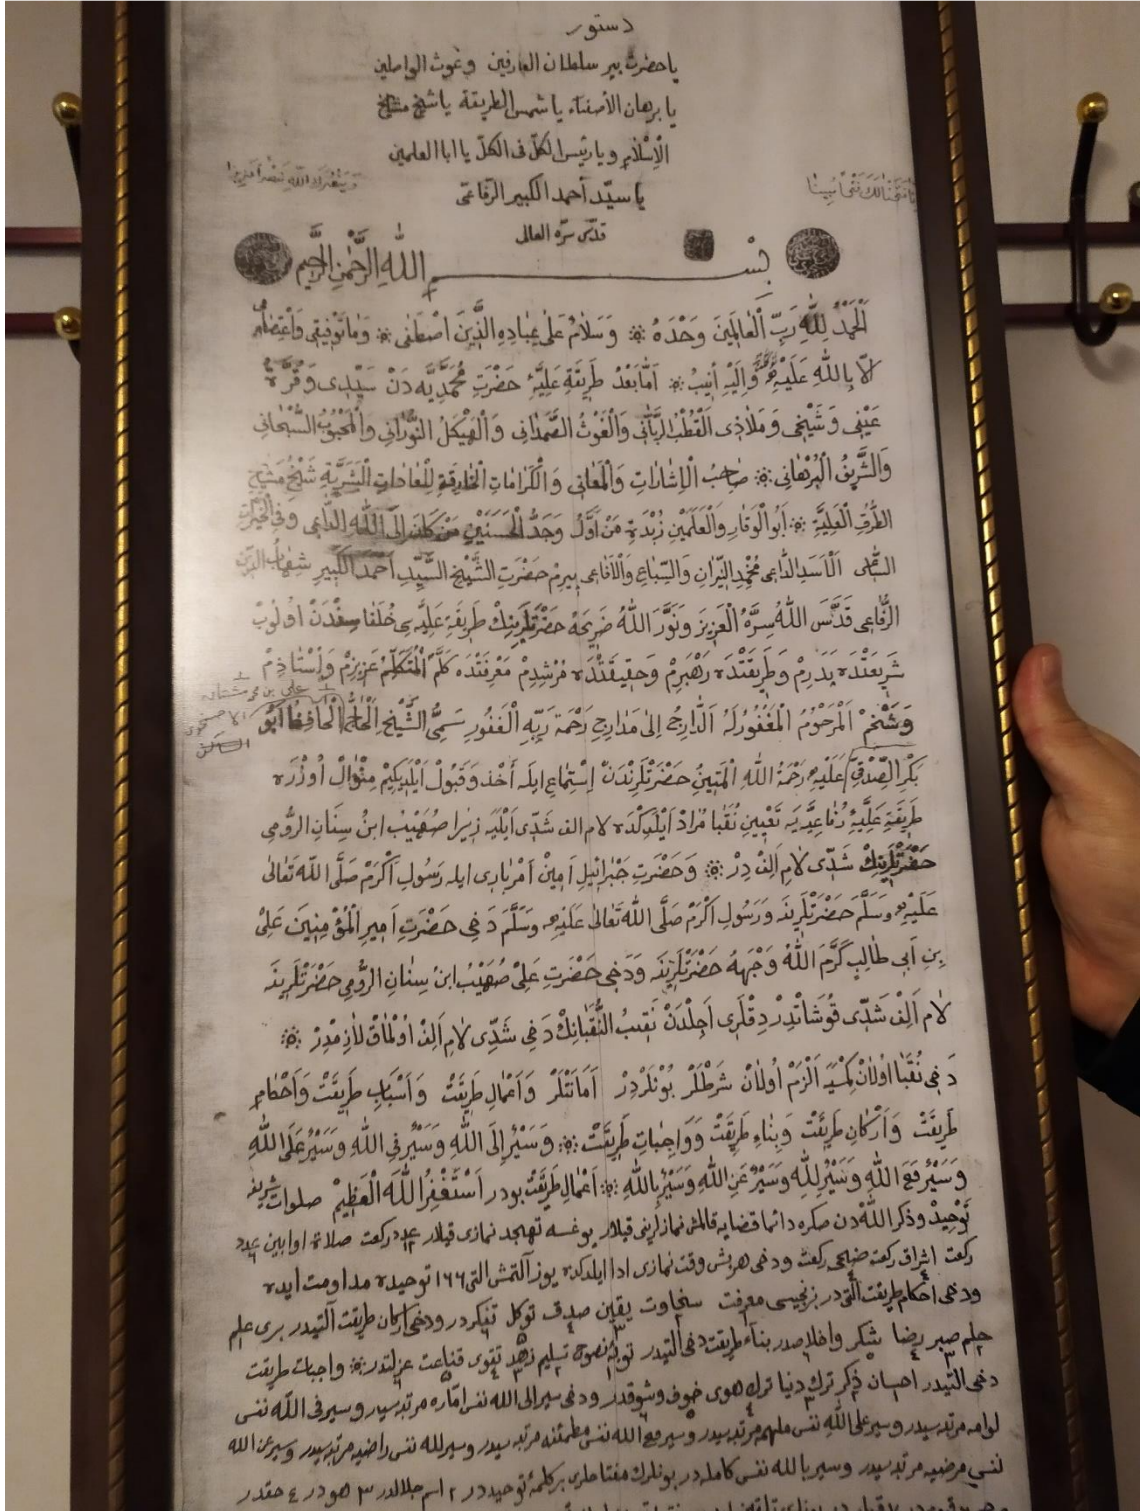 دستور
ياحضرت پير سلطان العارفين وغوث الواصلين
يا برهان الأصفياء يا شمس الطريقة يا شيخ مشايخ
الإسلام ويا رئيس الكلّ فى الكلّ يا ابا العلمين
يا سيّد أحمد الكبير الرّفاعى
قدّس سرّه العالى
وَيَنْصُرَكَ اللّٰهُ نَصْرًا عَزِيزًا
إِنَّا فَتَحْنَا لَكَ فَتْحًا مُبِينًا
بِسْمِ اللّٰهِ الرَّحْمٰنِ الرَّحِيمِ
اَلْحَمْدُ لِلّٰهِ رَبِّ الْعَالَمِينَ وَحْدَهُ وَسَلَامٌ عَلٰى عِبَادِهِ الَّذِينَ اصْطَفٰى وَمَا تَوْفِيقِى وَاعْتِصَامِى
اِلَّا بِاللّٰهِ عَلَيْهِ وَاِلَيْهِ اُنِيبُ اَمَّا بَعْدُ طَرِيقَةِ عَلِيَّهِٔ حَضْرَتِ مُحَمَّدِيَّه دَنْ سَيِّدِى وَقُرَّةُ
عَيْنِى وَشَيْخِى وَمَلَاذِى اَلْقُطْبُ الرَّبَّانِى وَالْغَوْثُ الصَّمَدَانِى وَالْهَيْكَلُ النُّورَانِى وَالْمَحْبُوبُ السُّبْحَانِى
وَالشَّرِيفُ الْبُرْهَانِى صَاحِبُ الْاِشَارَاتِ وَالْمَعَانِى وَالْكَرَامَاتِ الْخَارِقَةِ لِلْعَادَاتِ الْبَشَرِيَّةِ شَيْخُ مَشَايِخِ
الطُّرُقِ الْعَلِيَّةِ اَبُو الْوَقَارِ وَالْعَلَمَيْنِ زُبْدَةِ مَنْ اَوَّلُ وَجَدُّ الْحَسَنَيْنِ مَنْ كَانَ اِلَى اللّٰهِ الدَّاعِى وَفِى الْخَيْرَاتِ
السَّاعِى اَلْاَسَدِ الدَّاعِى مُخْمِدِ النِّيرَانِ وَالسِّبَاعِ وَالْاَفَاعِى پِيرِمْ حَضْرَتِ الشَّيْخِ السَّيِّدِ اَحْمَدَ الْكَبِيرِ شِهَابُ الدِّين
الرِّفَاعِى قَدَّسَ اللّٰهُ سِرَّهُ الْعَزِيزَ وَنَوَّرَ اللّٰهُ ضَرِيحَهُ حَضْرَتْلَرِينِكْ طَرِيقَةِ عَلِيَّه سِى خُلَفَا سِنْدَنْ اُولُوبْ
شَرِيعَتْدَه پَدَرِمْ وَطَرِيقَتْدَه رَهْبَرِمْ وَحَقِيقَتْدَه مُرْشِدِمْ مَعْرِفَتْدَه كَلَّمَ الْمُتَكَلِّمْ عَزِيزِمْ وَاُسْتَاذِمْ
وَشَيْخِمْ اَلْمَرْحُومُ الْمَغْفُورُ لَهُ اَلدَّارِجُ اِلٰى مَدَارِجِ رَحْمَةِ رَبِّهِ الْغَفُورِ سَمِىُّ الشَّيْخِ اَلْحَاجُّ الْحَافِظُ اَبُو
على بن محمد
بَكْرِ الصِّدْقِى عَلَيْهِ رَحْمَةُ اللّٰهِ الْمَتِينُ حَضْرَتْلَرِنْدَنْ اِسْتِمَاعِ ايلَه أَخْذ وَقَبُولْ اَيْلَدِيكِمْ مِنْوَالْ اُوزْرَه
طَرِيقَةِ عَلِيَّهِٔ رُفَاعِيَّه يَه تَعْيِينِ نُقَبَا مُرَادْ اَيْلَدِكْدَه لام الف شَدِّى اَيْلَيَه زِيرَا صُهَيْبْ ابنُ سِنَانِ الرُّومِى
حَضْرَتْلَرِينِكْ شَدِّى لَامِ اَلِفْ دِرْ وَحَضْرَتِ جَبْرَائِيلِ اَمِينْ اَمْرِ بَارِى ايله رَسُولِ اَكْرَمْ صَلَّى اللّٰهُ تَعَالٰى
عَلَيْهِ وَسَلَّمَ حَضْرَتْلَرِينَه وَرَسُولِ اَكْرَمْ صَلَّى اللّٰهُ تَعَالٰى عَلَيْهِ وَسَلَّمَ دَخِى حَضْرَتِ اَمِيرِ الْمُؤْمِنِينَ عَلِىْ
بِنِ اَبِى طَالِبٍ كَرَّمَ اللّٰهُ وَجْهَهُ حَضْرَتْلَرِينَه وَدَخِى حَضْرَتِ عَلِىْ صُهَيْبُ ابنُ سِنَانِ الرُّومِى حَضْرَتْلَرِينَه
لَام اَلِفْ شَدِّى قُوشَاتْدِرْدِقْلَرِى اَجِلْدَنْ نَقِيبُ النُّقَبَانِكْ دَخِى شَدِّى لَامِ اَلِفْ اُولْمَاقْ لَازِمْدِرْ
دَخِى نُقَبَا اُولَانْ كِمْسَيَه اَلْزَمْ اُولَانْ شَرْطْلَرْ بُونْلَرْدِرْ اَمَانَتْلَرْ وَاَعْمَالِ طَرِيقَتْ وَاَسْبَابِ طَرِيقَتْ وَاَحْكَامِ
طَرِيقَتْ وَاَرْكَانِ طَرِيقَتْ وَبِنَاءِ طَرِيقَتْ وَوَاجِبَاتِ طَرِيقَتْ وَسَيْرٌ اِلَى اللّٰهِ وَسَيْرٌ فِى اللّٰهِ وَسَيْرٌ عَلَى اللّٰهِ
وَسَيْرٌ مَعَ اللّٰهِ وَسَيْرٌ لِلّٰهِ وَسَيْرٌ عَنِ اللّٰهِ وَسَيْرٌ بِاللّٰهِ اَعْمَالِ طَرِيقَتْ بودر اَسْتَغْفِرُ اللّٰهَ الْعَظِيمْ صلوات شريفه
تَوْحِيدْ وذكر اللّٰه دن صكره دائما قضايه قالمش نمازلرينى قيلار يوغسه تهجد نمازى قيلار ١٢ عدد ركعت صلاة اوابين ٦ عدد
ركعت اشراق ٤ ركعت ضحى ٤ ركعت ودخى هر بش وقت نمازى ادا ايلدكده يوز آلتمش التى ١٦٦ توحيده مداومت ايده
ودخى احكام طريقت آلتى در برنجيسى معرفت سخاوت يقين صدق توكل تفكر در ودخى اركان طريقت آلتيدر برى علم
حلم صبر رضا شكر واخلاصدر بناء طريقت دخى آلتيدر توبهٔ نصوح تسليم زهد تقوى قناعت عزلتدر واجبات طريقت
دخى آلتيدر احسان ذكر ترك دنيا ترك هوى خوف وشوقدر ودخى سير الى الله نفس امّاره مرتبه سيدر وسير فى الله نفس
لوامه مرتبه سيدر وسير على الله نفس ملهمه مرتبه سيدر وسير مع الله نفس مطمئنه مرتبه سيدر وسير لله نفس راضيه مرتبه سيدر وسير عن الله
نفس مرضيه مرتبه سيدر وسير بالله نفس كامله در بونلرك مفتاحلرى بر كلمهٔ توحيد در ٢ اسم جلالدر ٣ هو در ٤ حقدر